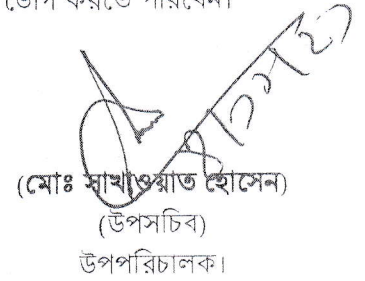 ভোগ করতে পারবেন।
(মোঃ সাখাওয়াত হোসেন)
(উপসচিব)
উপপরিচালক।